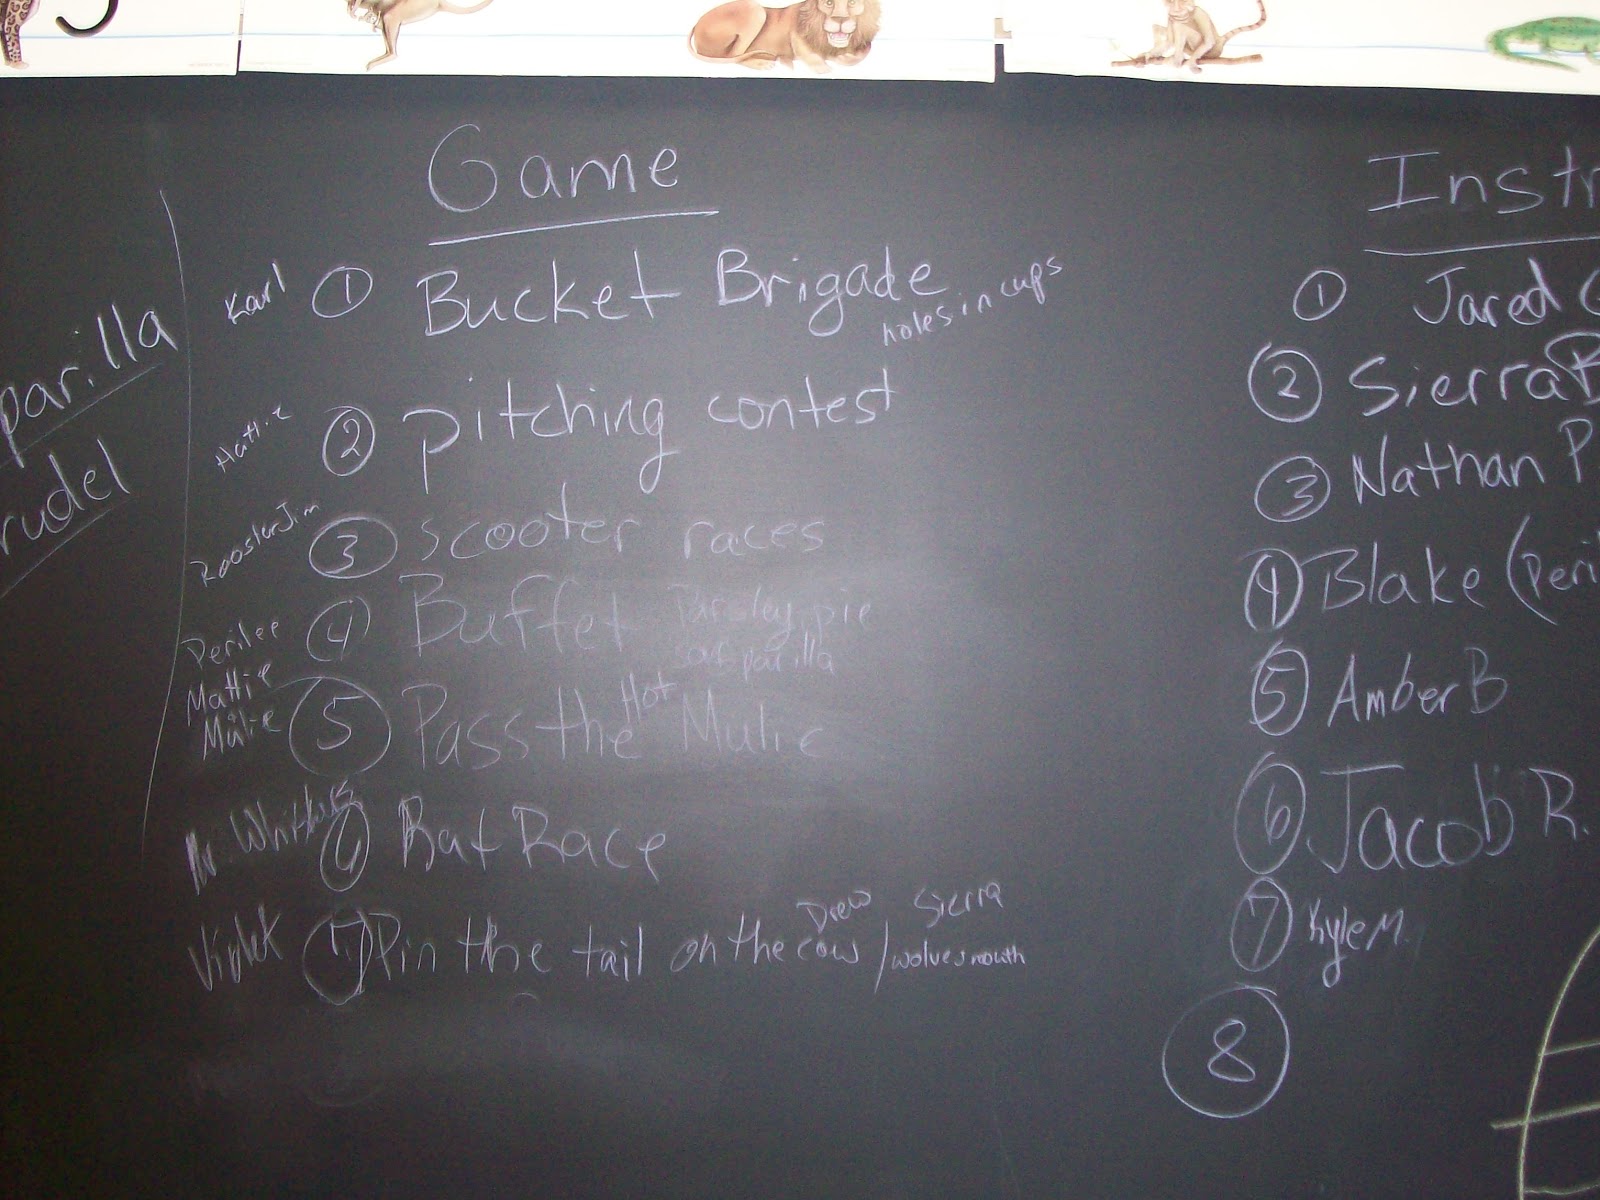 parilla
rudel
Game
Karl ① Bucket Brigade
holes in cups
Hattie ② pitching contest
Rooster Jim ③ scooter races
Perilee ④ Buffet Parsley pie
sarsparilla
Mattie
Mulie ⑤ Pass the Hot Mulie
Mr. Whitt ⑥ Rat Race
Violet ⑦ Pin the tail on the cow / wolves mouth
Drew Sierra
Instr
① Jared
② Sierra B
③ Nathan P
④ Blake (Peri
⑤ Amber B
⑥ Jacob R.
⑦ Kyle M.
⑧